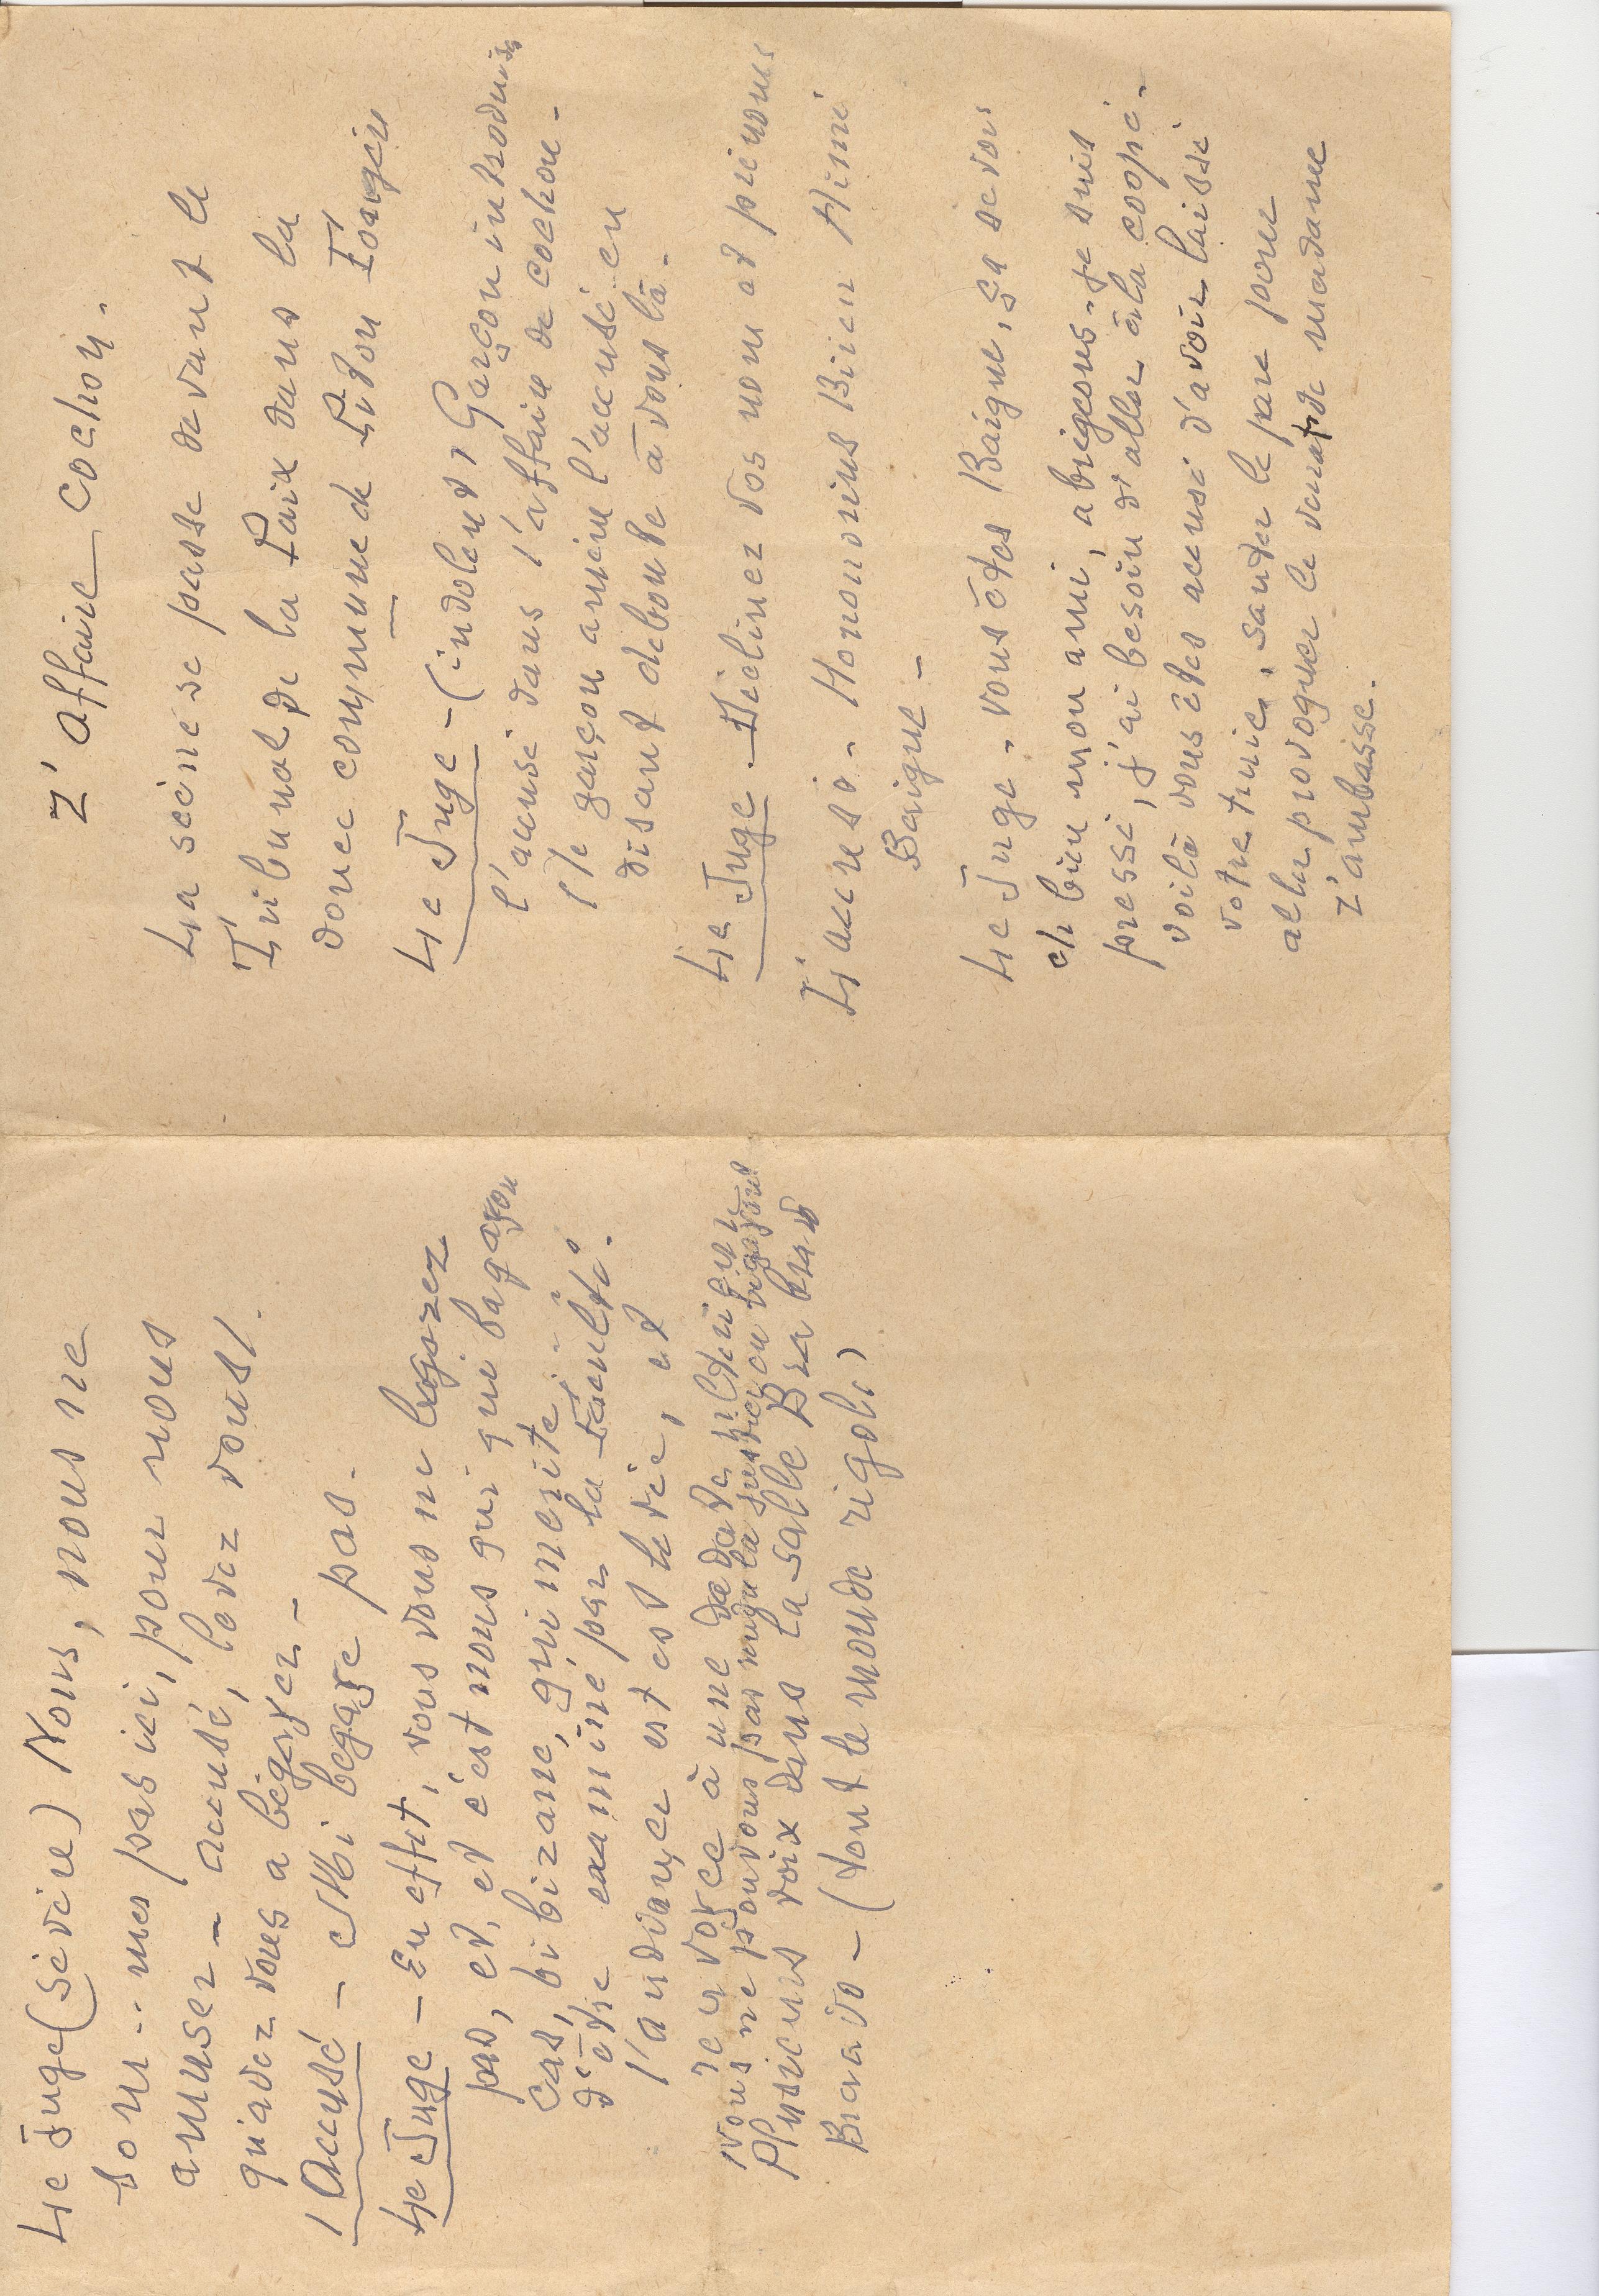 L'affaire Cochon.
La scène se passe devant le
Tribunal de la Paix dans la
douce commune de Piton Tangein
Le Juge - (indolent) Garçon introduis
l'accusé dans l'affaire de cochon -
(le garçon amène l'accusé en
disant deboute à vous là -
Le Juge - Déclinez vos nom et prénoms
L'accusé - Honornius Bien Aimé
Baigne -
Le Juge - vous êtes Baigne, ça se voir
eh bien mon ami, abrégeons - je suis
pressé, j'ai besoin d'aller à la coopé -
voilà vous êtes accusé d'avoir laissé
votre truie, sauter le parc pour
aller provoquer le verrat de madame
L'ambaisse.
Le Juge (sévère) Nous, nous ne
som.. mes pas ici, pour nous
amuser - accusé, levez vous!
qu'avez vous a bégayer -
l'Accusé - Mbi begaye pas -
Le Juge - En effet, vous vous ne bégayez
pas, et, et c'est nous qui qui bagayon
cas, bi bizarre, qui mérite
d'être examiné par la Faculté.
l'audiance est est levée, et
renvoyée à une da date ultérieure
Nous ne pouvons pas rendre la justice en bégayant
Plusieurs voix dans la salle Bra bravo
Bravo - (tout le monde rigole)